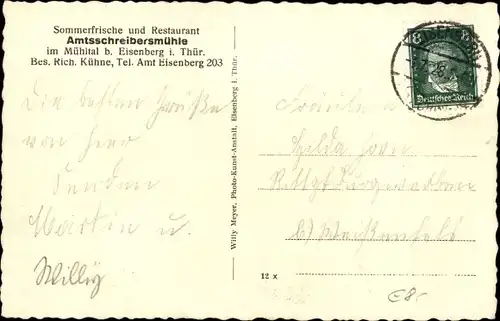 Sommerfrische und Restaurant
Amtsschreibersmühle
im Mühltal b. Eisenberg i. Thür.
Bes. Rich. Kühne, Tel. Amt Eisenberg 203
Die besten Grüße
von hier
senden
Martin u.
Willy
Willy Meyer, Photo-Kunst-Anstalt, Eisenberg i. Thür.
12 x
8 8
Deutsches Reich
Fräulein
Hilda
b/ Weißenfels
€8,-